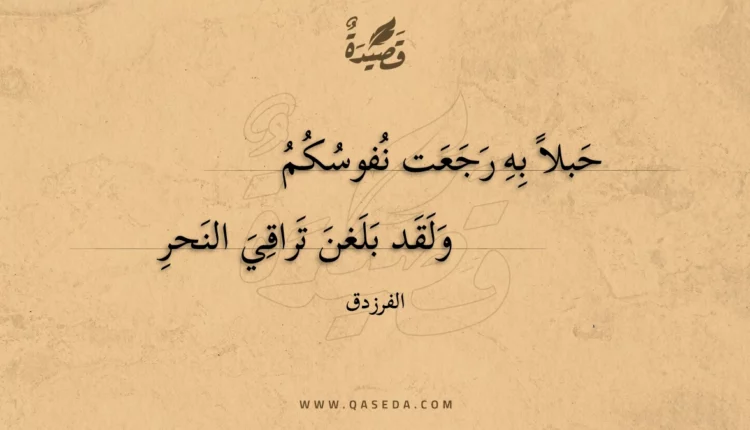 قَصِيْدَةٌ
حَبلاً بِهِ رَجَعَت نُفوسُكُمُ
وَلَقَد بَلَغنَ تَراقِيَ النَحرِ
الفرزدق
WWW.QASEDA.COM